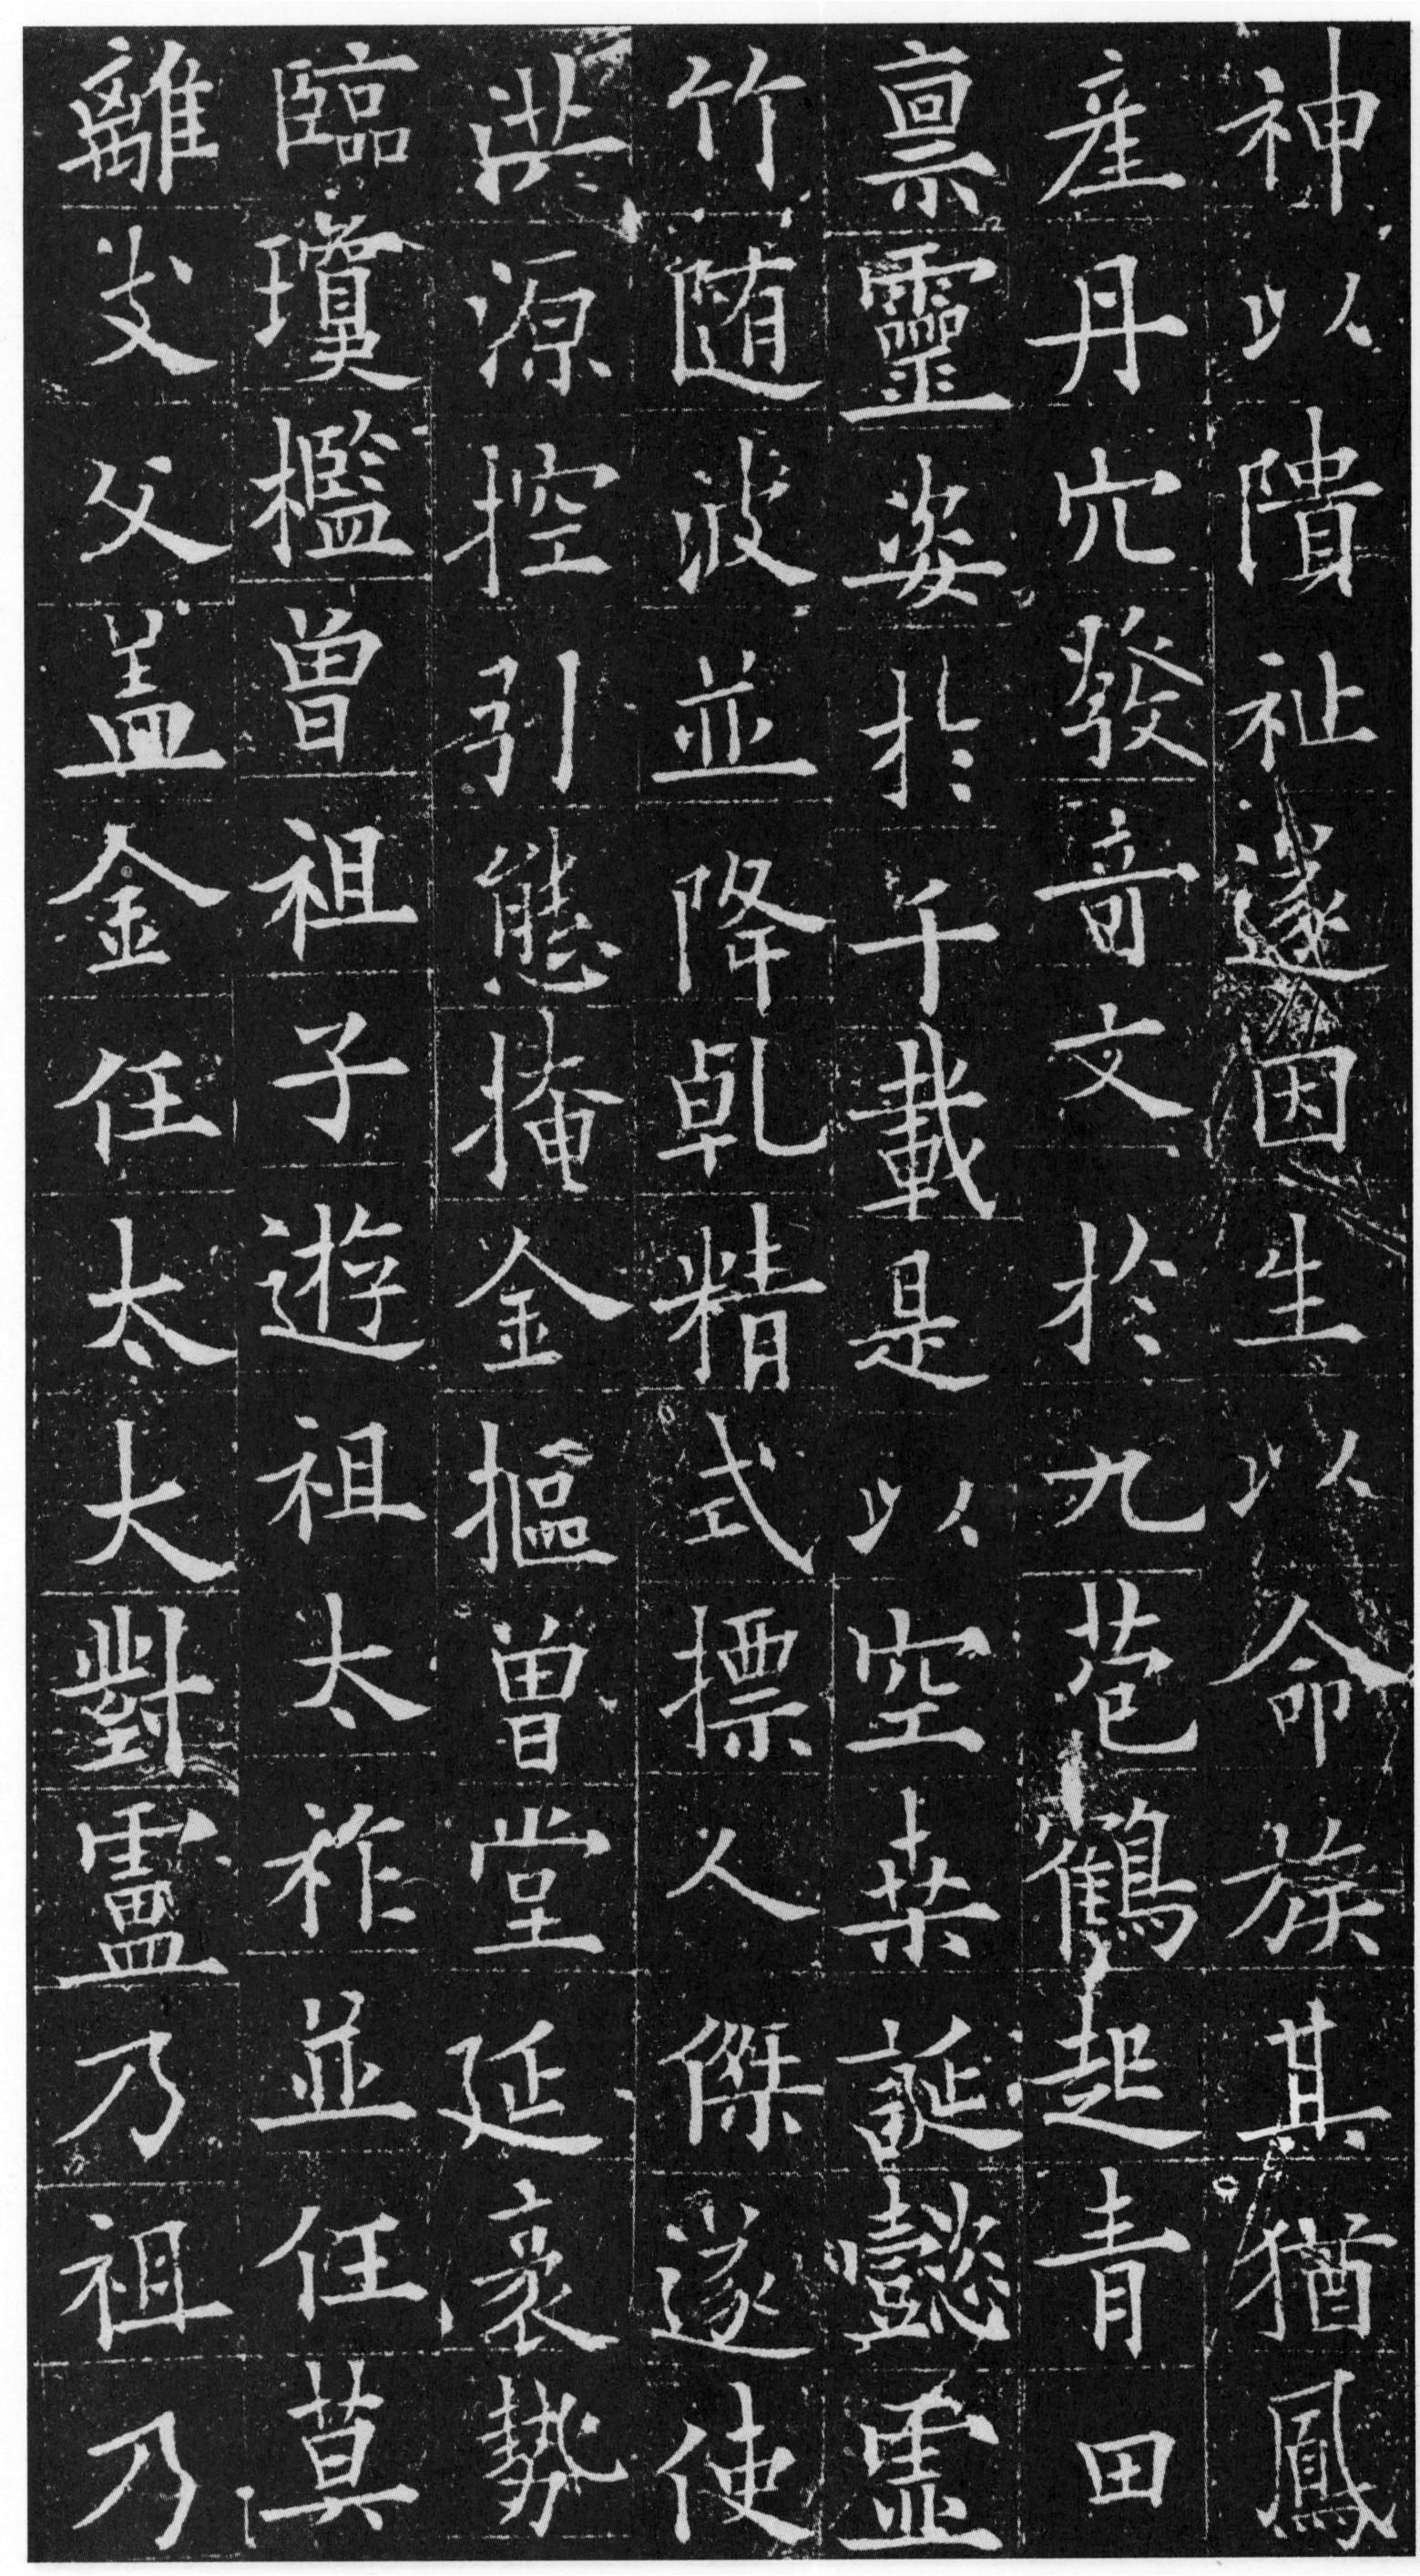 神以隤祉遂因生以命族其猶鳳
產丹穴發音文於九苞鶴起青田
禀靈姿於千載是以空桒誕懿虛
竹随波並降乹精式摽人傑遂使
洪源控引態掩金摳曾堂延袤勢
臨瓊檻曾祖子遊祖太祚並任莫
離支父盖金任太大對盧乃祖乃